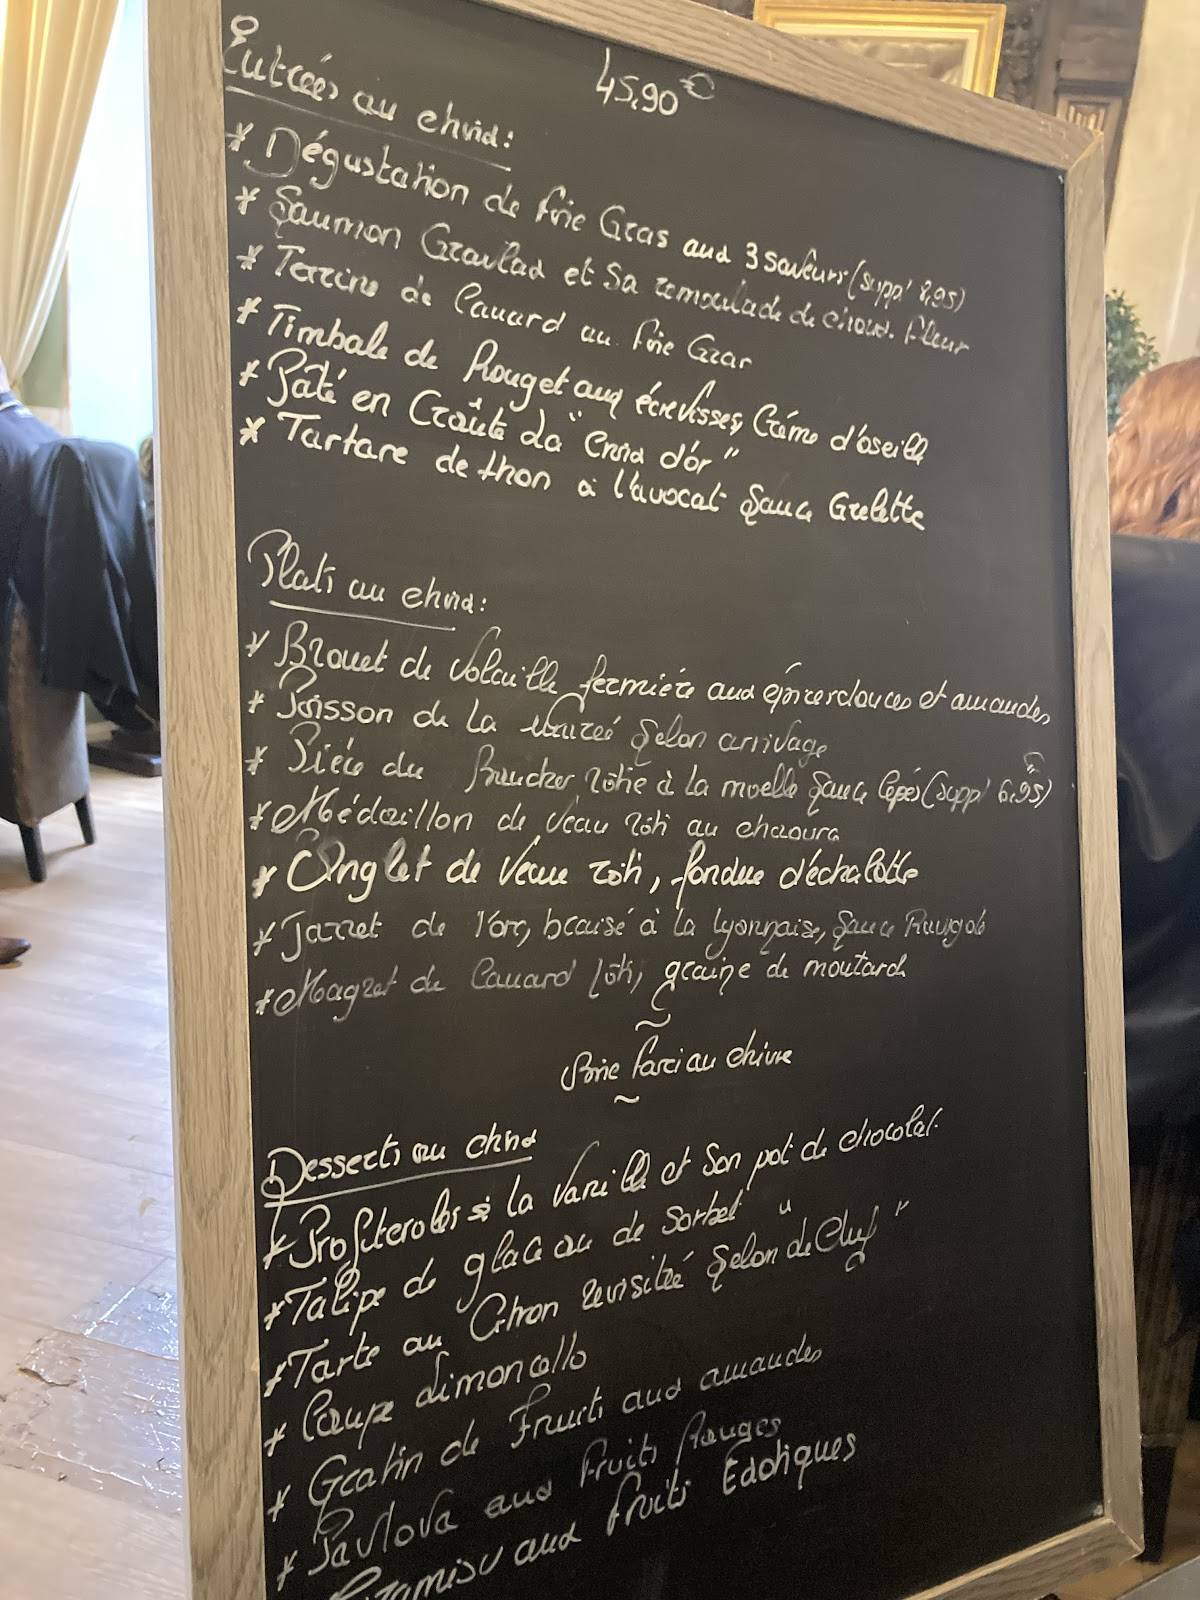 45,90€
Entrées au choix:
* Dégustation de foie Gras aux 3 saveurs (supp' 8,95)
* Saumon Gravlax et sa remoulade de choux-fleur
* Terrine de Canard au foie Gras
* Timbale de Rouget aux écrevisses, Crème d'oseille
* Pâté en Croûte La "Croix d'or"
* Tartare de thon à l'avocat Sauce Grelette
Plats au choix:
* Brouet de volaille fermière aux épices douces et amandes
* Poisson de la marée selon arrivage
* Pièce du Boucher rôtie à la moelle Sauce Cèpes (supp' 6,95)
* Médaillon de veau rôti au chaource
* Onglet de veau rôti, fondue d'échalotte
* Jarret de Porc, braisé à la lyonnaise, Sauce
* Magret de Canard rôti, graine de moutarde
~
Brie farci au chèvre
~
Desserts au choix
* Profiteroles à la vanille et son pot de chocolat
* Talipe de glace ou de sorbet
* Tarte au Citron revisitée "selon le Chef"
* Coupe Limoncello
* Gratin de Fruits aux amandes
* Pavlova aux fruits Rouges
Tiramisu aux fruits Exotiques